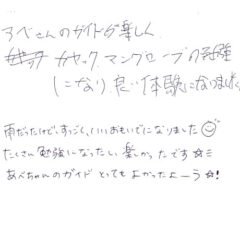 アベさんのガイドが楽しく
カヤック、マングローブの勉強
になり、良い体験になりました
雨だったけど、すっごくいいおもいでになりました
たくさん勉強になったし楽しかったです☆ミ
あべちゃんのガイド とってもよかったよーう☆!